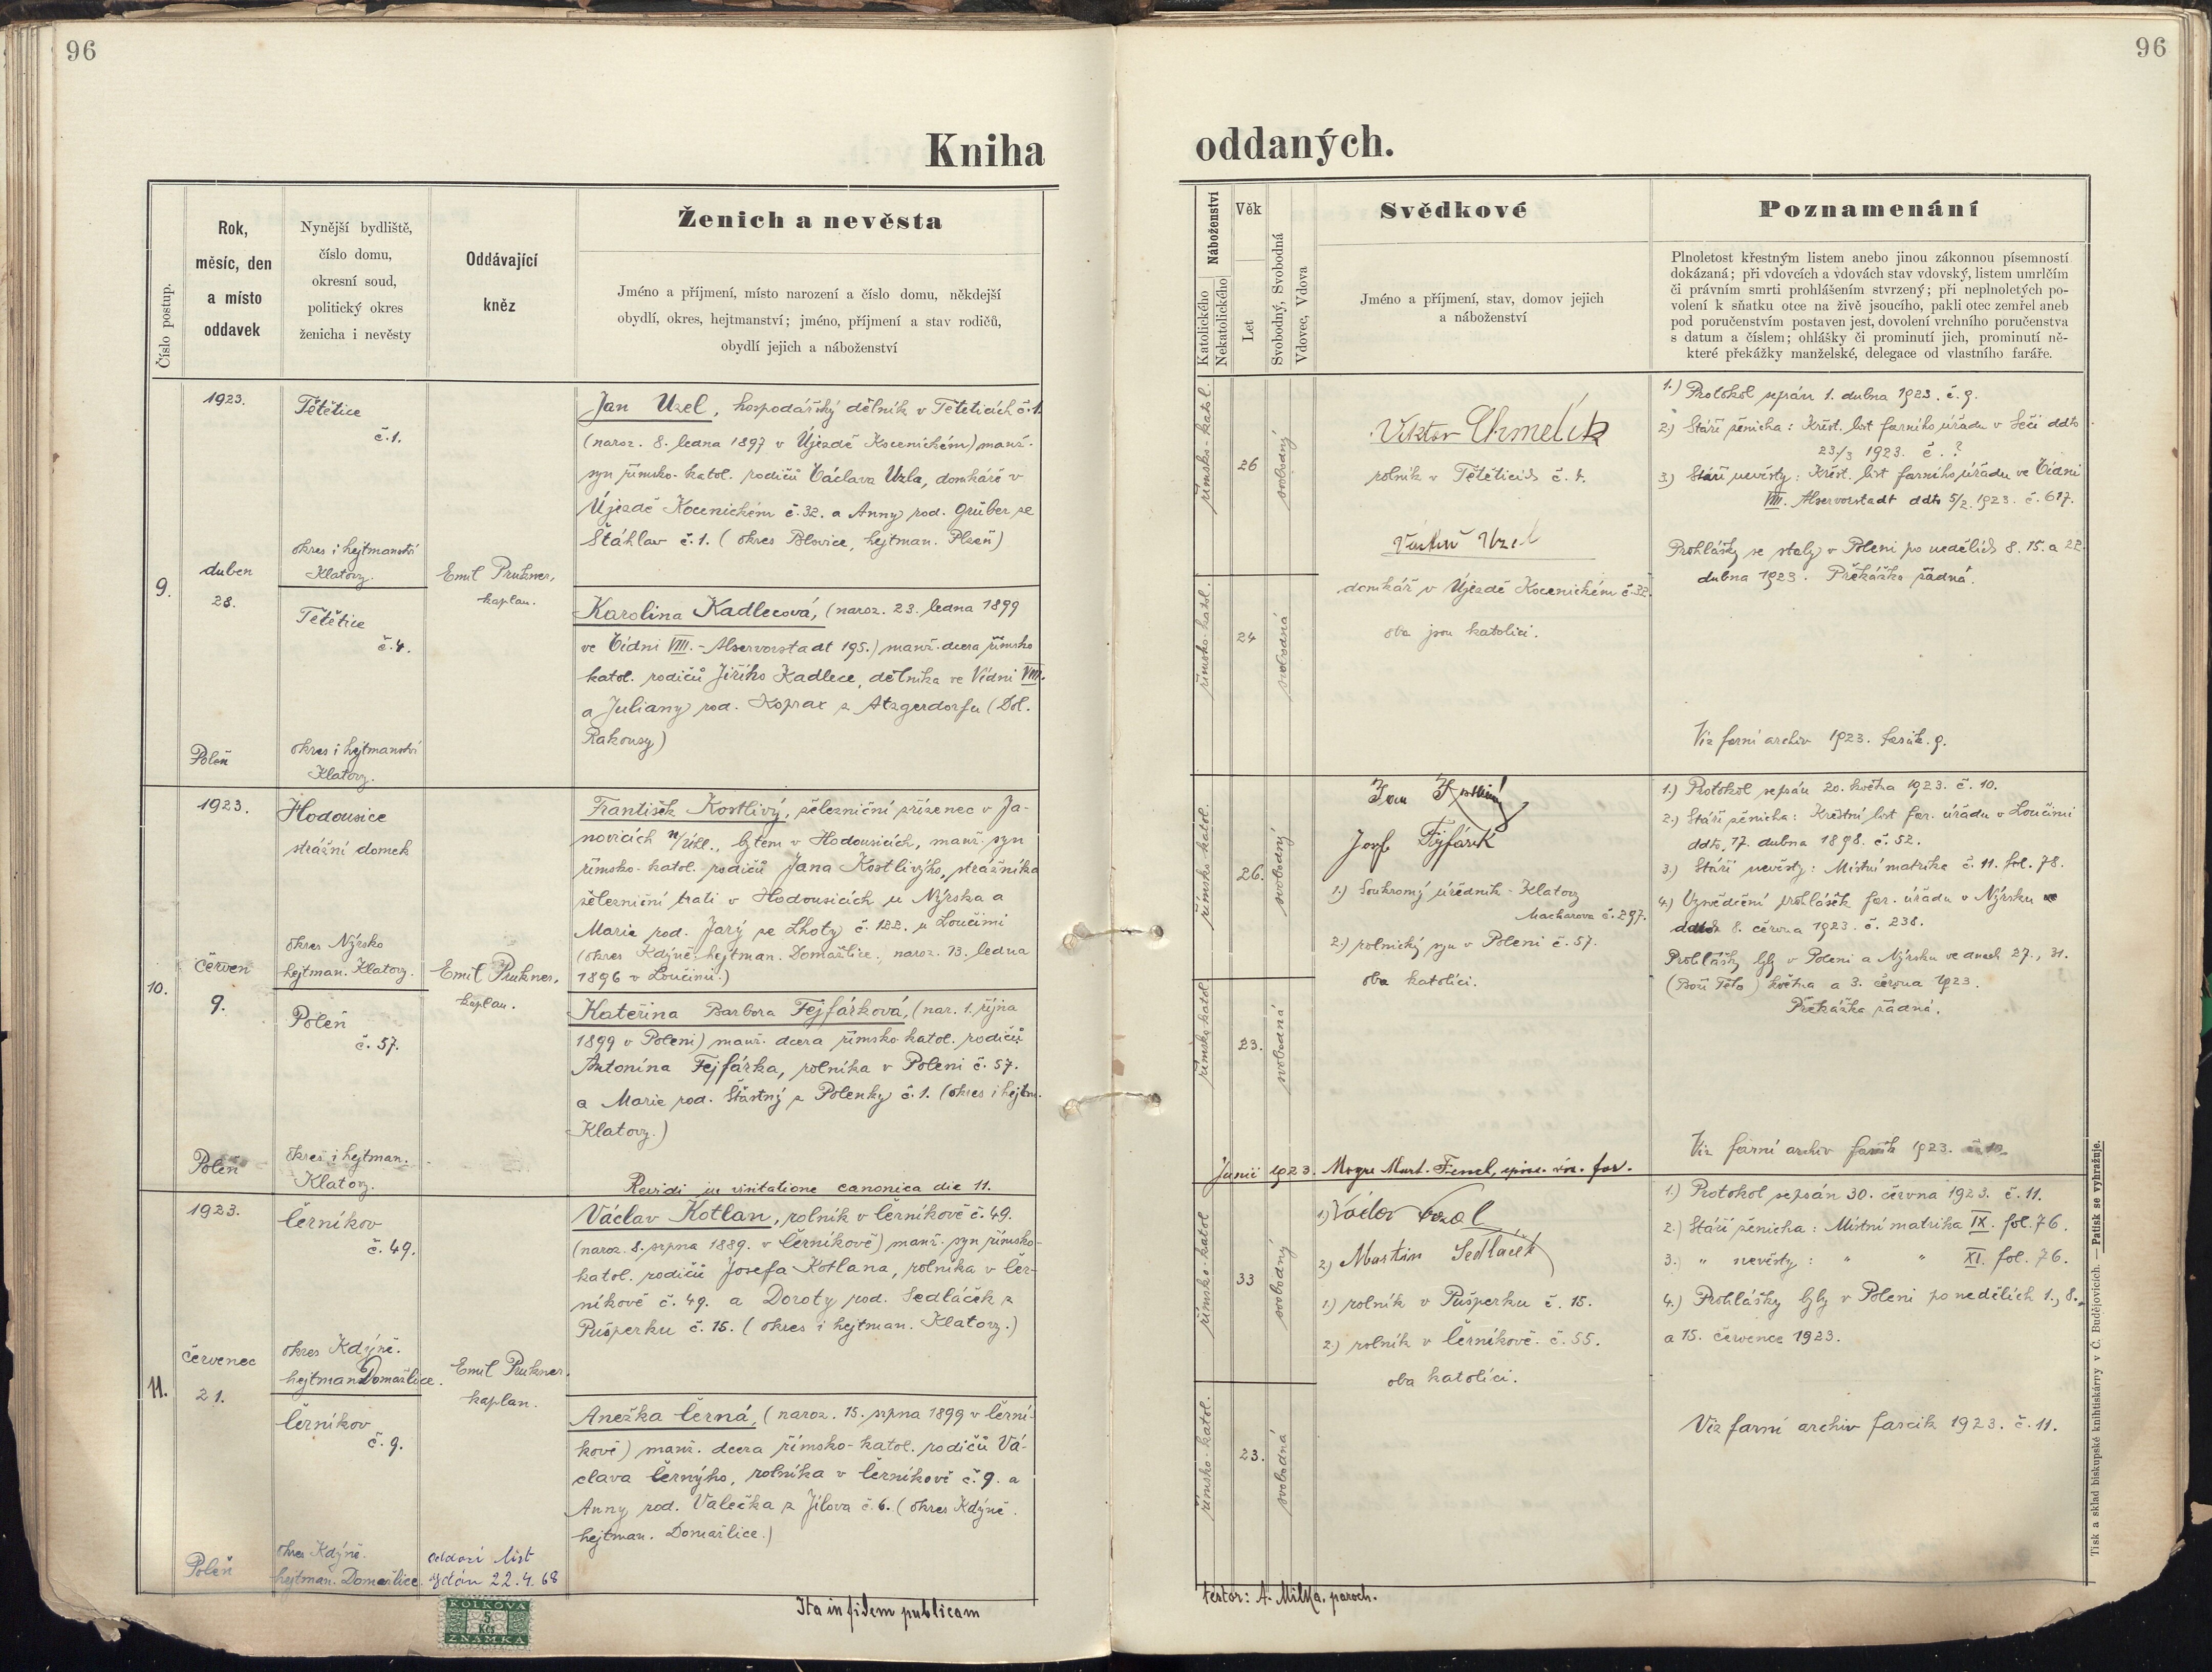 96
96
Kniha
oddaných.
Číslo postup.
Rok,
měsíc, den
a místo
oddavek
Nynější bydliště,
číslo domu,
okresní soud,
politický okres
ženicha i nevěsty
Oddávající
kněz
Ženich a nevěsta
Jméno a příjmení, místo narození a číslo domu, někdejší
obydlí, okres, hejtmanství; jméno, příjmení a stav rodičů,
obydlí jejich a náboženství
Náboženství
Katolického
Nekatolického
Věk
Let
Svobodný, Svobodná
Vdovec, Vdova
Svědkové
Jméno a příjmení, stav, domov jejich
a náboženství
Poznamenání
Plnoletost křestným listem anebo jinou zákonnou písemností
dokázaná; při vdovcích a vdovách stav vdovský, listem umrlčím
či právním smrti prohlášením stvrzený; při neplnoletých po-
volení k sňatku otce na živě jsoucího, pakli otec zemřel aneb
pod poručenstvím postaven jest, dovolení vrchního poručenstva
s datum a číslem; ohlášky či prominutí jich, prominutí ně-
které překážky manželské, delegace od vlastního faráře.
9.
1923.
duben
28.
Poleň
Tětětice
č.1.
okres i hejtmanství
Klatovy.
Tětětice
č.4.
okres i hejtmanství
Klatovy.
Emil Prukner,
kaplan.
Jan Uzel, hospodářský dělník v Tětěticích č.1.
(naroz. 8. ledna 1897 v Újezdě Kocenickém) manž.
syn římsko-katol. rodičů Václava Uzla, domkáře v
Újezdě Kocenickém č.32. a Anny rod. Grüber ze
Šťáhlav č.1. (okres Blovice, hejtman. Plzeň)
Karolina Kadlecová, (naroz. 23. ledna 1899
ve Vídni VIII. - Alservorstadt 195.) manž. dcera římsko
katol. rodičů Jiřího Kadlece, dělníka ve Vídni VIII.
a Juliany rod. Koprax z Atzgerdorfu (Dol.
Rakousy)
římsko-katol.
26
svobodný
římsko-katol.
24
svobodná
Viktor Chmelík
rolník v Tětěticích č. 4.
Uzel
domkář v Újezdě Kocenickém č.32.
oba jsou katolíci.
1.) Protokol sepsán 1. dubna 1923. č. 9.
2) Stáří ženicha: Křest. list farního úřadu v Seči ddto
23/3 1923. č. ?
3) Stáří nevěsty: Křest. list farního úřadu ve Vídni
VIII. Alservorstadt ddto 5/2 1923. č. 617.
Prohlášky se staly v Poleni po nedělích 8. 15. a 22.
dubna 1923. Překážka žádná.
Viz farní archiv 1923. fascik. 9.
10.
1923.
červen
9.
Poleň
Hodousice
strážní domek
okres Nýrsko
hejtman. Klatovy.
Poleň
č. 57.
okres i hejtman.
Klatovy.
Emil Prukner,
kaplan.
František Kostlivý, železniční zřízenec v Ja-
novicích n/Úhl., bytem v Hodousicích, manž. syn
římsko-katol. rodičů Jana Kostlivýho, strážníka
železniční trati v Hodousicích u Nýrska a
Marie rod. Jarý ze Lhoty č. 122. u Loučimi
(okres Kdýně, hejtman. Domažlice, naroz. 13. ledna
1896 v Loučimi.)
Kateřina Barbora Fejfárková, (nar. 1. října
1899 v Poleni) manž. dcera římsko katol. rodičů
Antonína Fejfárka, rolníka v Poleni č. 57.
a Marie rod. Šťastný z Polenky č.1. (okres i hejtm.
Klatovy.)
Revidi in visitatione canonica die 11.
římsko-katol.
26.
svobodný
římsko katol
23.
svobodná
Jan Kostlivý
Josef Fejfárek
1.) Soukromý úředník - Klatovy
Macharova č. 297.
2.) rolnický syn v Poleni č. 57.
oba katolíci.
Junii 1923. Mart. Fencl,
1.) Protokol sepsán 20. května 1923. č. 10.
2.) Stáří ženicha: Křestní list far. úřadu v Loučimi
ddto, 17. dubna 1898. č. 52.
3.) Stáří nevěsty: Místní matrika č. 11. fol. 78.
4.) Vysvědčení prohlášek far. úřadu v Nýrsku
8. června 1923. č. 238.
Prohlášky byly v Poleni a Nýrsku ve dnech 27., 31.
(Boží Tělo) května a 3. června 1923.
Překážka žádná.
Viz farní archiv fascik 1923. č. 10.
11.
1923.
červenec
21.
Poleň
Černíkov
č. 49.
okres Kdýně.
hejtman. Domažlice.
Černíkov
č. 9.
okres Kdýně.
hejtman. Domažlice.
Emil Prukner,
kaplan.
oddací list
vydán 22.4.68
Václav Kotlan, rolník v Černíkově č. 49.
(naroz. 8. srpna 1889. v Černíkově) manž. syn římsko-
katol. rodičů Josefa Kotlana, rolníka v Čer-
níkově č. 49. a Doroty rod. Sedláček z
Pušperku č. 15. (okres i hejtman. Klatovy.)
Anežka Černá, (naroz. 15. srpna 1899 v Černí-
kově) manž. dcera římsko-katol. rodičů Vá-
clava Černýho, rolníka v Černíkově č. 9. a
Anny rod. Valečka z Jílova č. 6. (okres Kdýně.
hejtman. Domažlice.)
římsko-katol
33
svobodný
římsko-katol.
23.
svobodná
2.) Martin Sedláček
1.) rolník v Pušperku č. 15.
2.) rolník v Černíkově. č. 55.
oba katolíci.
1.) Protokol sepsán 30. června 1923. č. 11.
2.) Stáří ženicha: Místní matrika IX. fol. 76.
3.) " nevěsty: " " XI. fol. 76.
4.) Prohlášky byly v Poleni po nedělích 1., 8.,
a 15. července 1923.
Viz farní archiv fascik 1923. č. 11.
KOLKOVÁ
5
Kčs
ZNÁMKA
Ita in fidem publicam
testor: A. Milka, paroch.
Tisk a sklad biskupské knihtiskárny v Č. Budějovicích. — Patisk se vyhražuje.